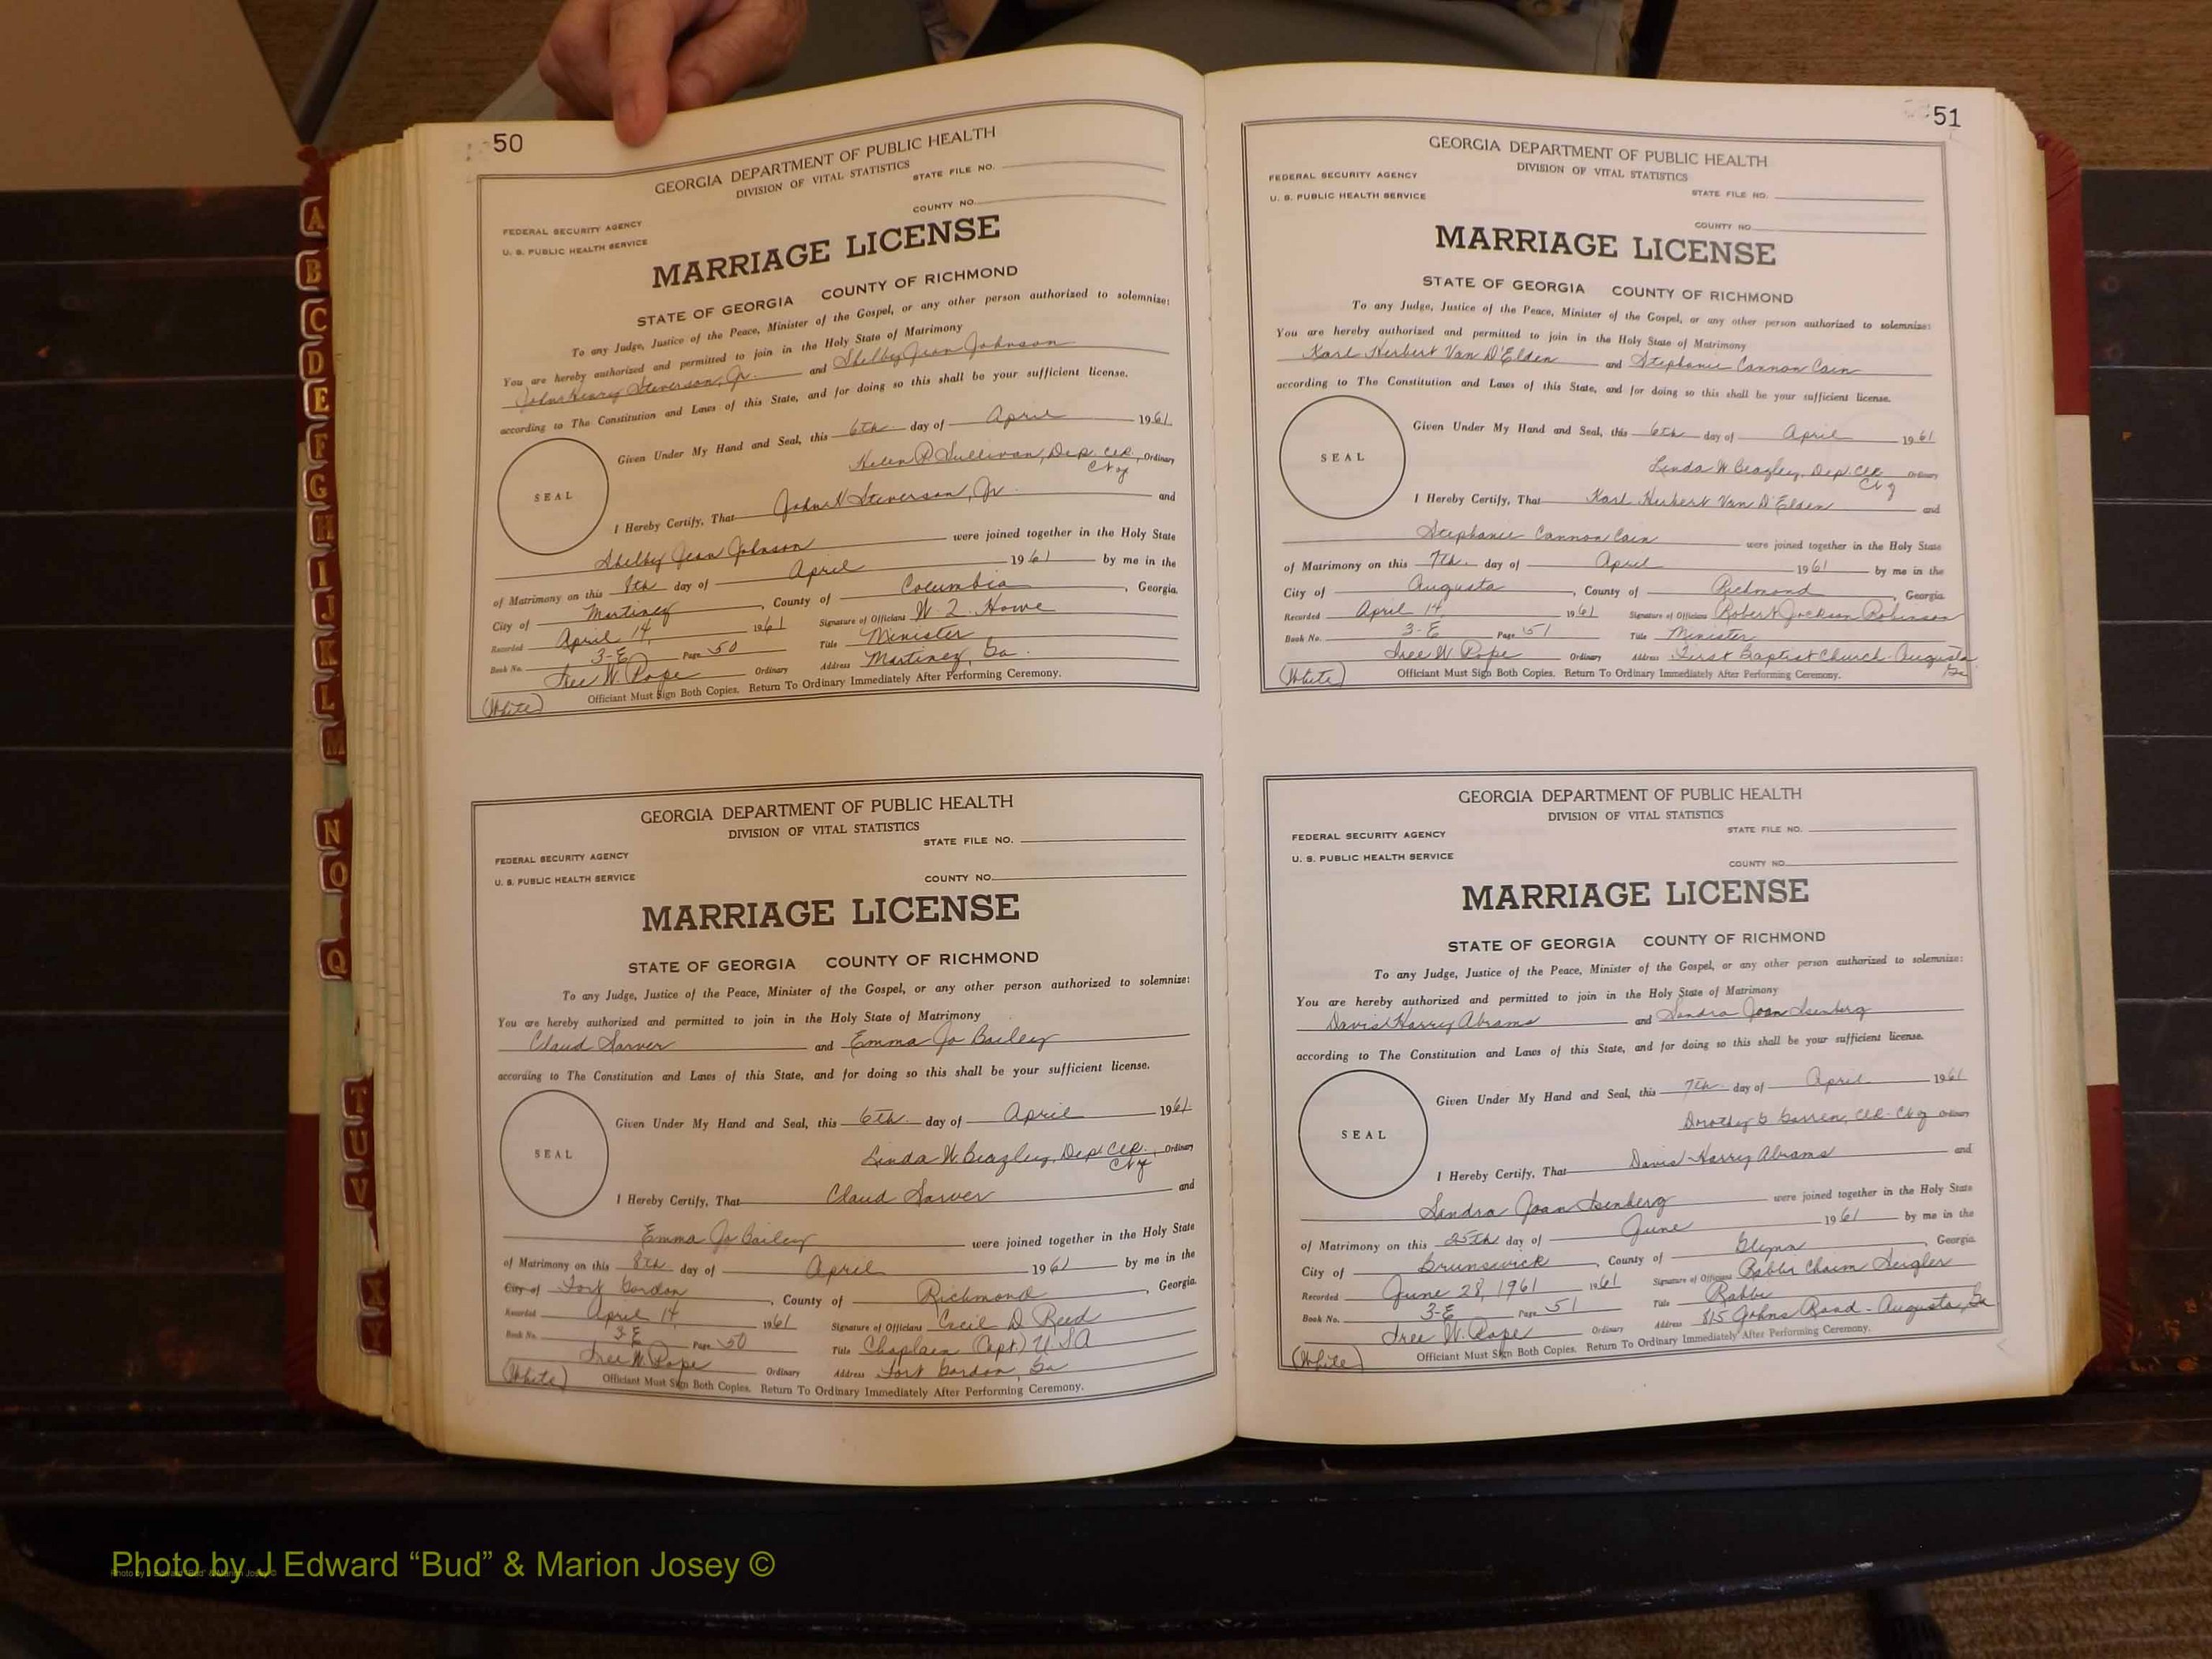 50
GEORGIA DEPARTMENT OF PUBLIC HEALTH
DIVISION OF VITAL STATISTICS
STATE FILE NO.
FEDERAL SECURITY AGENCY
COUNTY NO.
U. S. PUBLIC HEALTH SERVICE
MARRIAGE LICENSE
STATE OF GEORGIA COUNTY OF RICHMOND
To any Judge, Justice of the Peace, Minister of the Gospel, or any other person authorized to solemnize:
You are hereby authorized and permitted to join in the Holy State of Matrimony
John Henry Steverson, Jr. and Shelby Jean Johnson
according to The Constitution and Laws of this State, and for doing so this shall be your sufficient license.
SEAL
Given Under My Hand and Seal, this 6th day of April 1961
Helen P. Sullivan, Dep. Clk., Ordinary
I Hereby Certify, That John H Steverson, Jr. and
Shelby Jean Johnson were joined together in the Holy State
of Matrimony on this 8th day of April 1961 by me in the
City of Martinez, County of Columbia, Georgia.
Recorded April 14, 1961 Signature of Officiant W. Z. Howe
Book No. 3-E Page 50 Title Minister
Tree W. Pope Ordinary Address Martinez, Ga.
(White) Officiant Must Sign Both Copies. Return To Ordinary Immediately After Performing Ceremony.
GEORGIA DEPARTMENT OF PUBLIC HEALTH
DIVISION OF VITAL STATISTICS
STATE FILE NO.
FEDERAL SECURITY AGENCY
U. S. PUBLIC HEALTH SERVICE
COUNTY NO.
MARRIAGE LICENSE
STATE OF GEORGIA COUNTY OF RICHMOND
To any Judge, Justice of the Peace, Minister of the Gospel, or any other person authorized to solemnize:
You are hereby authorized and permitted to join in the Holy State of Matrimony
Claud Sarver and Emma Jo Bailey
according to The Constitution and Laws of this State, and for doing so this shall be your sufficient license.
SEAL
Given Under My Hand and Seal, this 6th day of April 1961
Linda W. Beazley, Dep. Clk., Ordinary
I Hereby Certify, That Claud Sarver and
Emma Jo Bailey were joined together in the Holy State
of Matrimony on this 8th day of April 1961 by me in the
City of Fort Gordon, County of Richmond, Georgia.
Recorded April 14, 1961 Signature of Officiant Cecil D. Reed
Book No. 3-E Page 50 Title Chaplain (Capt.) U.S.A
Tree W. Pope Ordinary Address Fort Gordon, Ga
(White) Officiant Must Sign Both Copies. Return To Ordinary Immediately After Performing Ceremony.
51
GEORGIA DEPARTMENT OF PUBLIC HEALTH
DIVISION OF VITAL STATISTICS
FEDERAL SECURITY AGENCY
STATE FILE NO.
U. S. PUBLIC HEALTH SERVICE
COUNTY NO.
MARRIAGE LICENSE
STATE OF GEORGIA COUNTY OF RICHMOND
To any Judge, Justice of the Peace, Minister of the Gospel, or any other person authorized to solemnize:
You are hereby authorized and permitted to join in the Holy State of Matrimony
Karl Herbert Van D'Elden and Stephanie Cannon Cain
according to The Constitution and Laws of this State, and for doing so this shall be your sufficient license.
SEAL
Given Under My Hand and Seal, this 6th day of April 1961
Linda W. Beazley, Dep. Clk. Ordinary
I Hereby Certify, That Karl Herbert Van D'Elden and
Stephanie Cannon Cain were joined together in the Holy State
of Matrimony on this 7th. day of April 1961 by me in the
City of Augusta, County of Richmond, Georgia.
Recorded April 14 1961 Signature of Officiant Robert Jackson Robinson
Book No. 3-E Page 51 Title Minister
Tree W. Pope Ordinary Address First Baptist Church - Augusta, Ga
(White) Officiant Must Sign Both Copies. Return To Ordinary Immediately After Performing Ceremony.
GEORGIA DEPARTMENT OF PUBLIC HEALTH
DIVISION OF VITAL STATISTICS
STATE FILE NO.
FEDERAL SECURITY AGENCY
U. S. PUBLIC HEALTH SERVICE
COUNTY NO.
MARRIAGE LICENSE
STATE OF GEORGIA COUNTY OF RICHMOND
To any Judge, Justice of the Peace, Minister of the Gospel, or any other person authorized to solemnize:
You are hereby authorized and permitted to join in the Holy State of Matrimony
David Harry Abrams and Sandra Joan Isenberg
according to The Constitution and Laws of this State, and for doing so this shall be your sufficient license.
SEAL
Given Under My Hand and Seal, this 7th day of April 1961
Dorothy G. Ordinary
I Hereby Certify, That David Harry Abrams and
Sandra Joan Isenberg were joined together in the Holy State
of Matrimony on this 25th day of June 1961 by me in the
City of Brunswick, County of Glynn, Georgia.
Recorded June 28, 1961 1961 Signature of Officiant Rabbi Chaim Seigler
Book No. 3-E Page 51 Title Rabbi
Tree W. Pope Ordinary Address 815 Johns Road - Augusta, Ga
(White) Officiant Must Sign Both Copies. Return To Ordinary Immediately After Performing Ceremony.
A
B
C
D
E
F
G
H
I
J
K
L
M
N
O
Q
T
U
V
X
Y
Photo by J Edward “Bud” & Marion Josey ©
Photo by J Edward "Bud" & Marion Josey ©